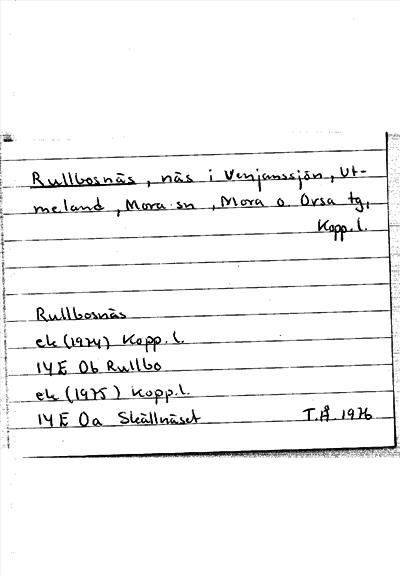 Rullbosnäs, näs i Venjanssjön, Ut-
meland, Mora sn, Mora o Orsa tg,
Kopp. l.
Rullbosnäs
ek (1974) Kopp. l.
14E 0b Rullbo
ek (1975) Kopp. l.
14E 0a Skällnäset T.Å. 1976